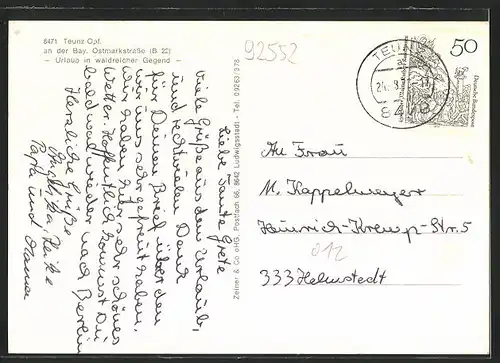 8471 Teunz Opf.
an der Bay. Ostmarkstraße (B 22)
– Urlaub in waldreicher Gegend –
92552
TEUNZ
50
Deutsche Bundespost
Liebe Tante Grete
viele Grüße aus dem Urlaub,
und recht vielen Dank
für Deinen Brief über den
wir uns sehr gefreut haben.
Wir haben sehr sehr schönes
Wetter. Hoffentlich kommst Du
bald mal wieder nach Berlin
Herzliche Grüße
Heike
Papa und Mama
Zeitner & Co oHG, Postfach 66, 8642 Ludwigsstadt - Tel. 09263/378
An Frau
M. Kappelmeyer
Heinrich-Kremp-Str. 5
012
333 Helmstedt